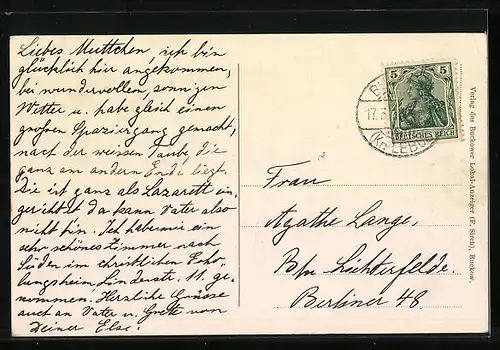 Liebes Muttchen ich bin
glücklich hier angekommen,
bei wundervollem, sonnigen
Wetter u. habe gleich einen
großen Spaziergang gemacht,
nach der weissen Taube, die
ganz am andern Ende liegt.
Die ist ganz als Lazarett ein-
gerichtet da kann Vater also
nicht hin. Ich habe mir ein
sehr schönes Zimmer nach
Süden im christlichen Erho-
lungsheim, Lindenstr. 11. ge-
nommen. Herzliche Grüsse
auch an Vater u. Grete von
Deiner Else.
5 5
DEUTSCHES REICH
17.
(Kr. LEBUS)
Frau
Agathe Lange,
Bln Lichterfelde.
Berliner 48.
Verlag des Buckower Lokal-Anzeiger (F. Sirch), Buckow.